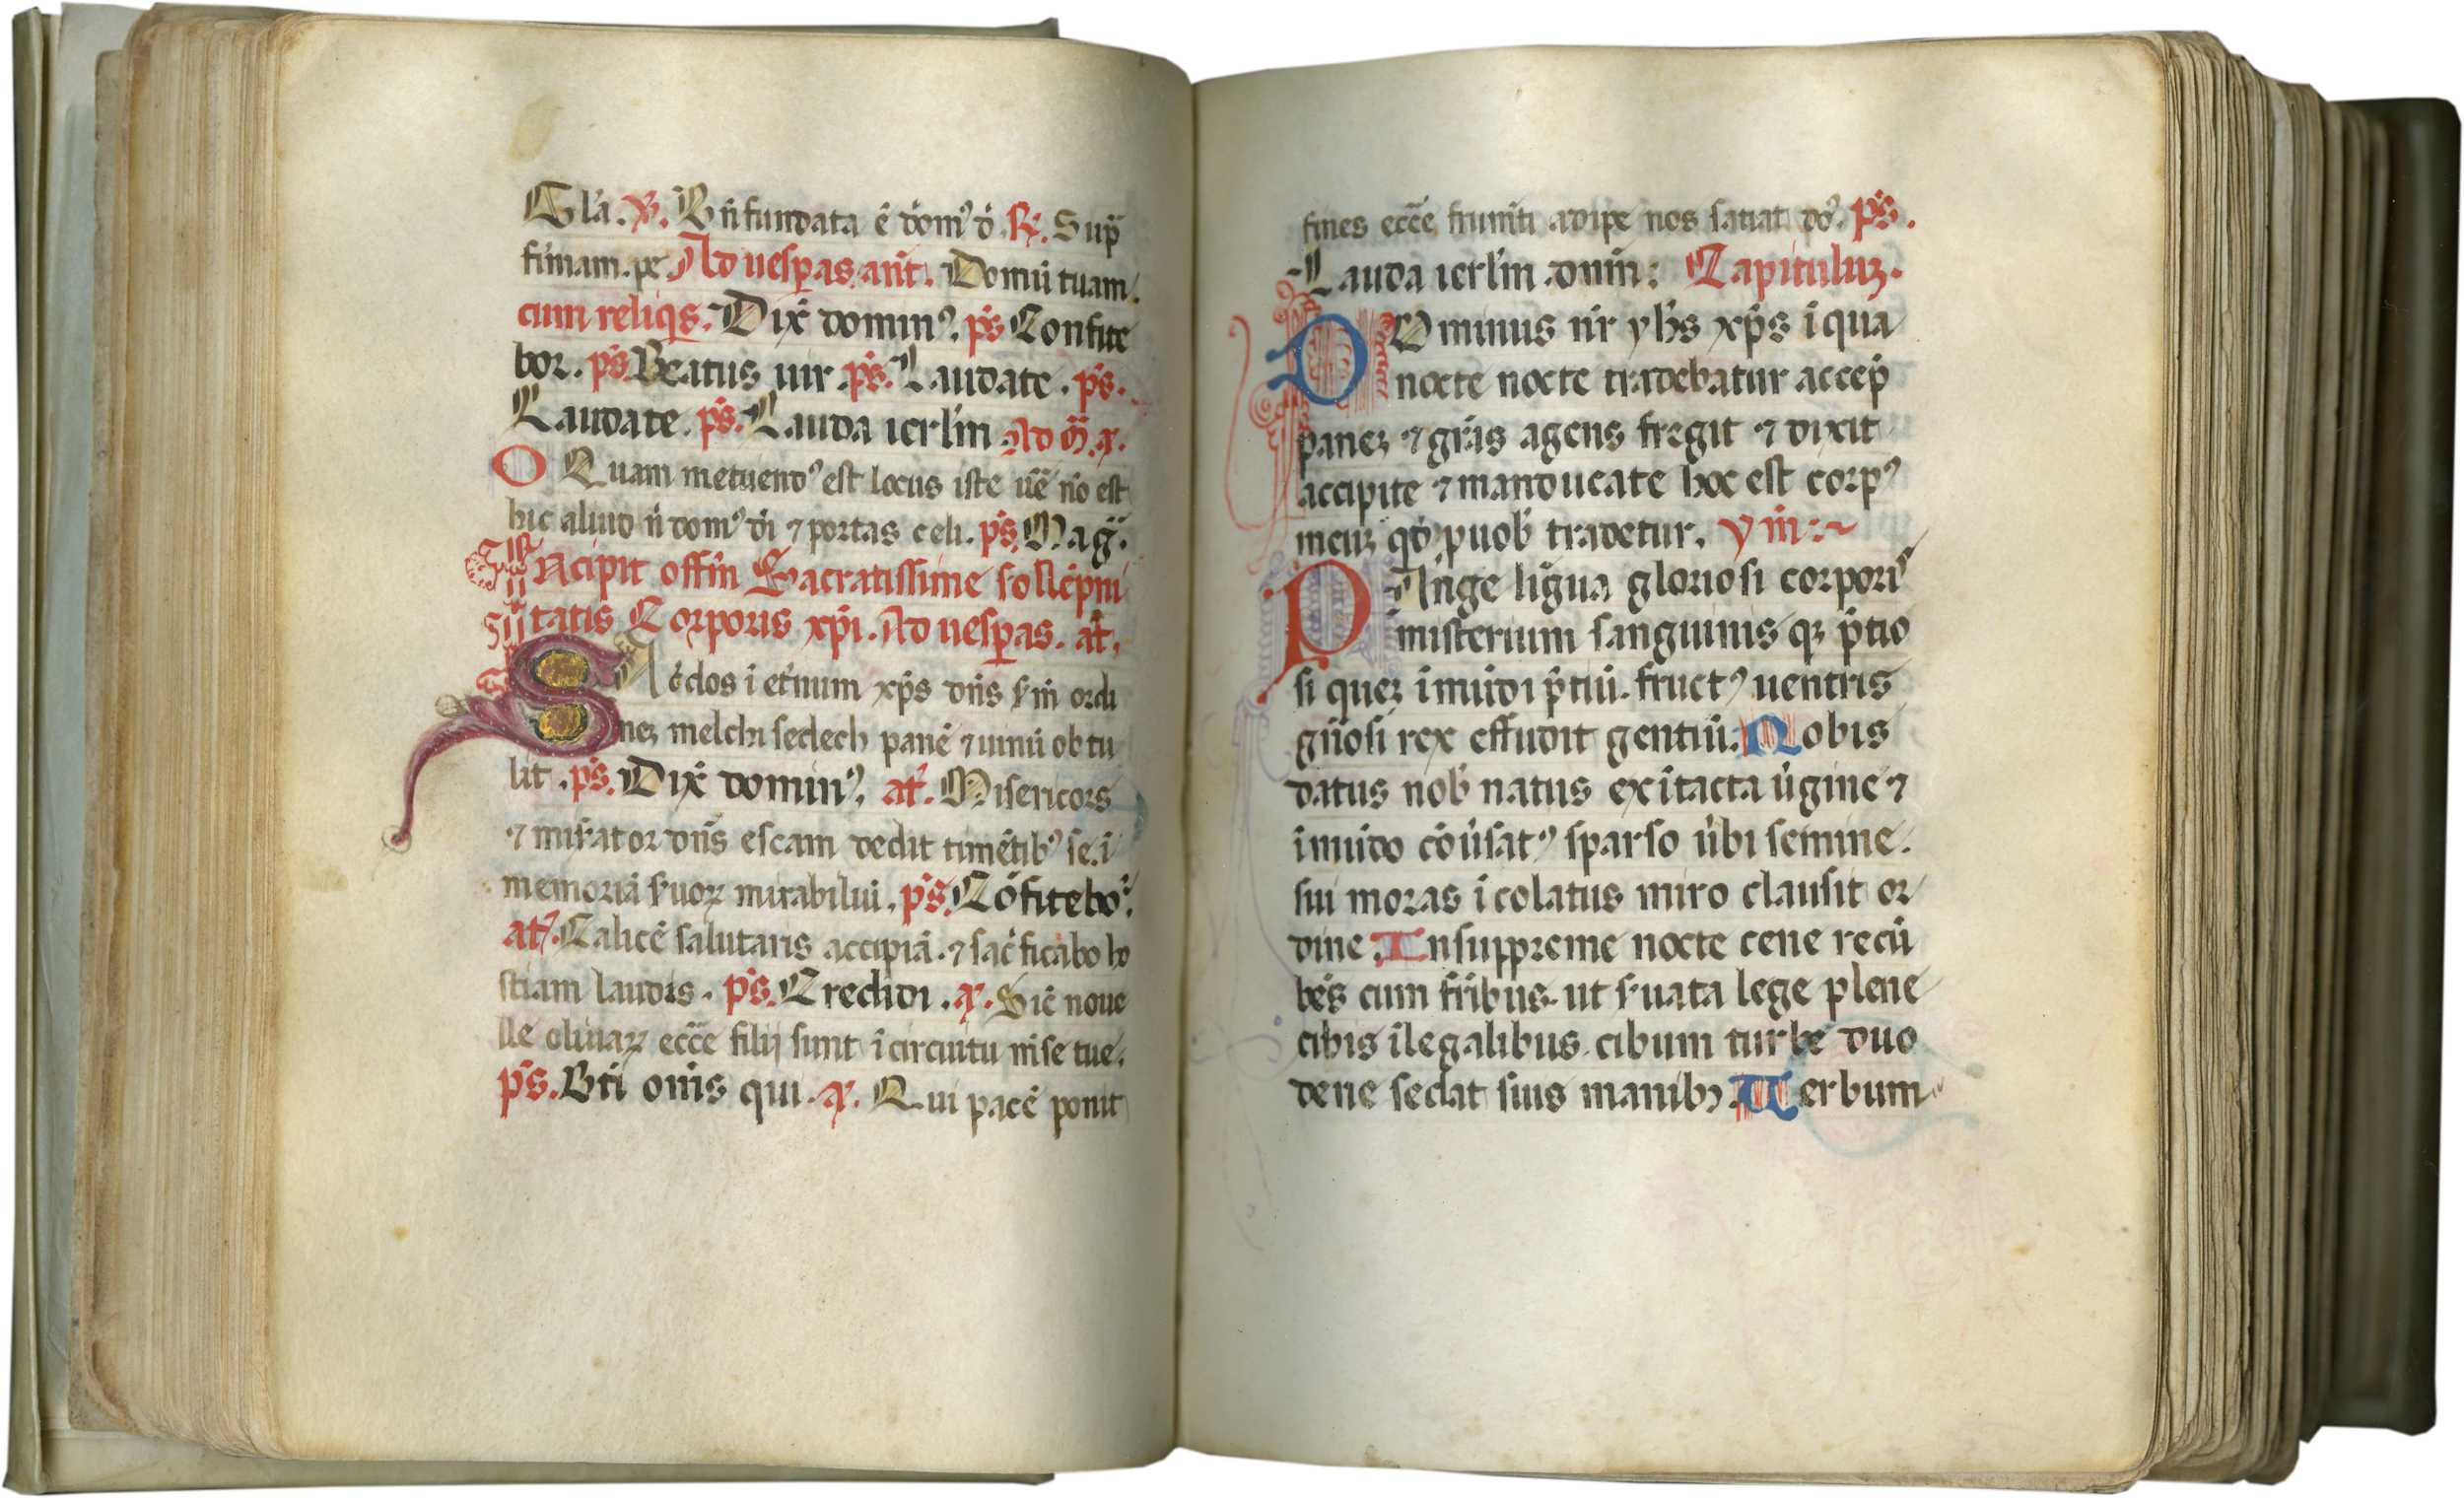 Gl'a. V. Bn̄ fundata ē dom⁹ d̄. R. Sup̄
firmam. pe. Ad uesꝑas. ant̄. Domū tuam.
cum reliqs. Dix̄ domin⁹. ps̄ Confite
bor. ps̄. Beatus uir. ps̄. Laudate. ps̄.
Laudate. ps̄. Lauda ierl'm Ad m̄. a.
O Quam metuend⁹ est locus iste ue͞ no͞ est
hic aliud n̄ dom⁹ di ⁊ portas celi. ps̄. Maḡ.
Incipit offm̄ Sacratissime sollēpni
tatis Corporis xp̄i. Ad uesꝑas. at̄.
SAc̄dos i et̄num xp̄s dn̄s s̄m ordi
neʒ melchisedech panē ⁊ uinū obtu
lit. ps̄. Dix̄ domin⁹. at̄. Misericors
⁊ mis̄ator dn̄s escam dedit timētib⁹ se. ī
memoriā suoꝝ mirabiliū. ps̄. Cōfitebo͛.
at̄. Calicē salutaris accipiā. ⁊ sac̄ficabo ho
stiam laudis. ps̄. Credidi. a. Sic̄ noue
lle oliuaꝝ ecc̄e filij sunt ī circuitu m̄se tue.
ps̄. Bti om̄is qui. a. Qui pacē ponit
fines ecc̄e frum̄ti adipe nos satiat do⁹. ps̄.
Lauda ierl'm dnm̄: Capituluʒ.
DOminus nr̄ yh̄s xp̄s ī qua
nocte nocte tradebatur accep̄
paneʒ ⁊ grās agens fregit ⁊ dixit
accipite ⁊ manducate hoc est corp⁹
meuʒ qd̄ p uob̄ tradetur. ym̄:~
PAnge līgua gloriosi corpori⁹
misterium sanguinis qʒ p̄tio
si queʒ ī mūdi p̄tiū. fruct⁹ uentris
gn̄osi rex effudit gentiū. Nobis
datus nob̄ natus ex ītacta ūgine ⁊
ī mūdo cōūsat⁹ sparso ūbi semine.
sui moras īcolatus miro clausit or
dine. In suppreme nocte cene recū
bēs cum fr̄ibus. ut s̄uata lege plene
cibis īlegalibus. cibum turbe duo
dene se dat suis manibʒ. Uerbum